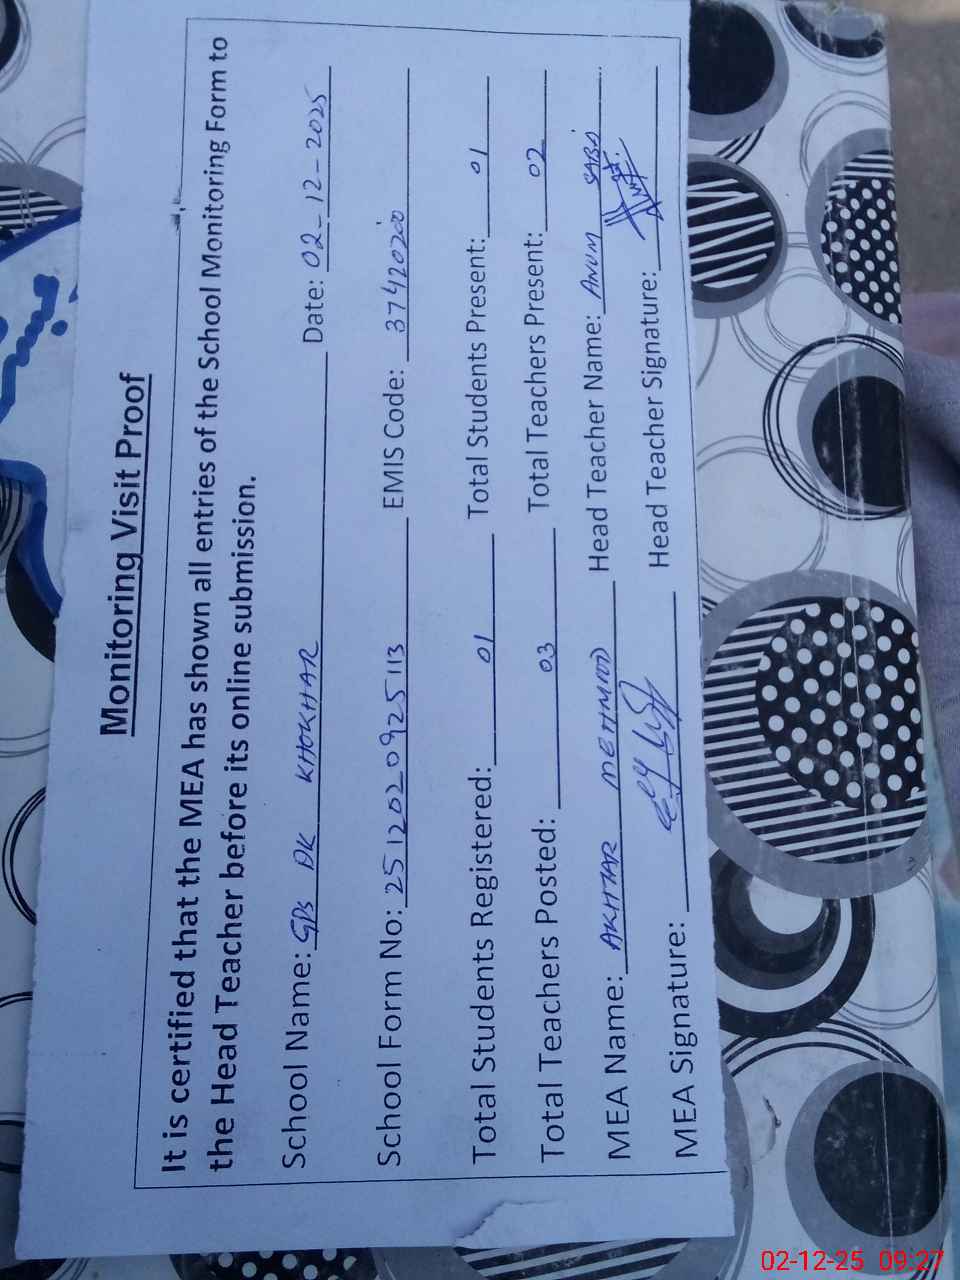 Monitoring Visit Proof
It is certified that the MEA has shown all entries of the School Monitoring Form to
the Head Teacher before its online submission.
School Name: GPS DK KHOKHAR Date: 02-12-2025
School Form No: 2512020925113 EMIS Code: 37420200
Total Students Registered: 01 Total Students Present: 01
Total Teachers Posted: 03 Total Teachers Present: 02
MEA Name: AKHTAR MEHMOOD Head Teacher Name: ANUM SABA
MEA Signature: Head Teacher Signature:
02-12-25 09:27